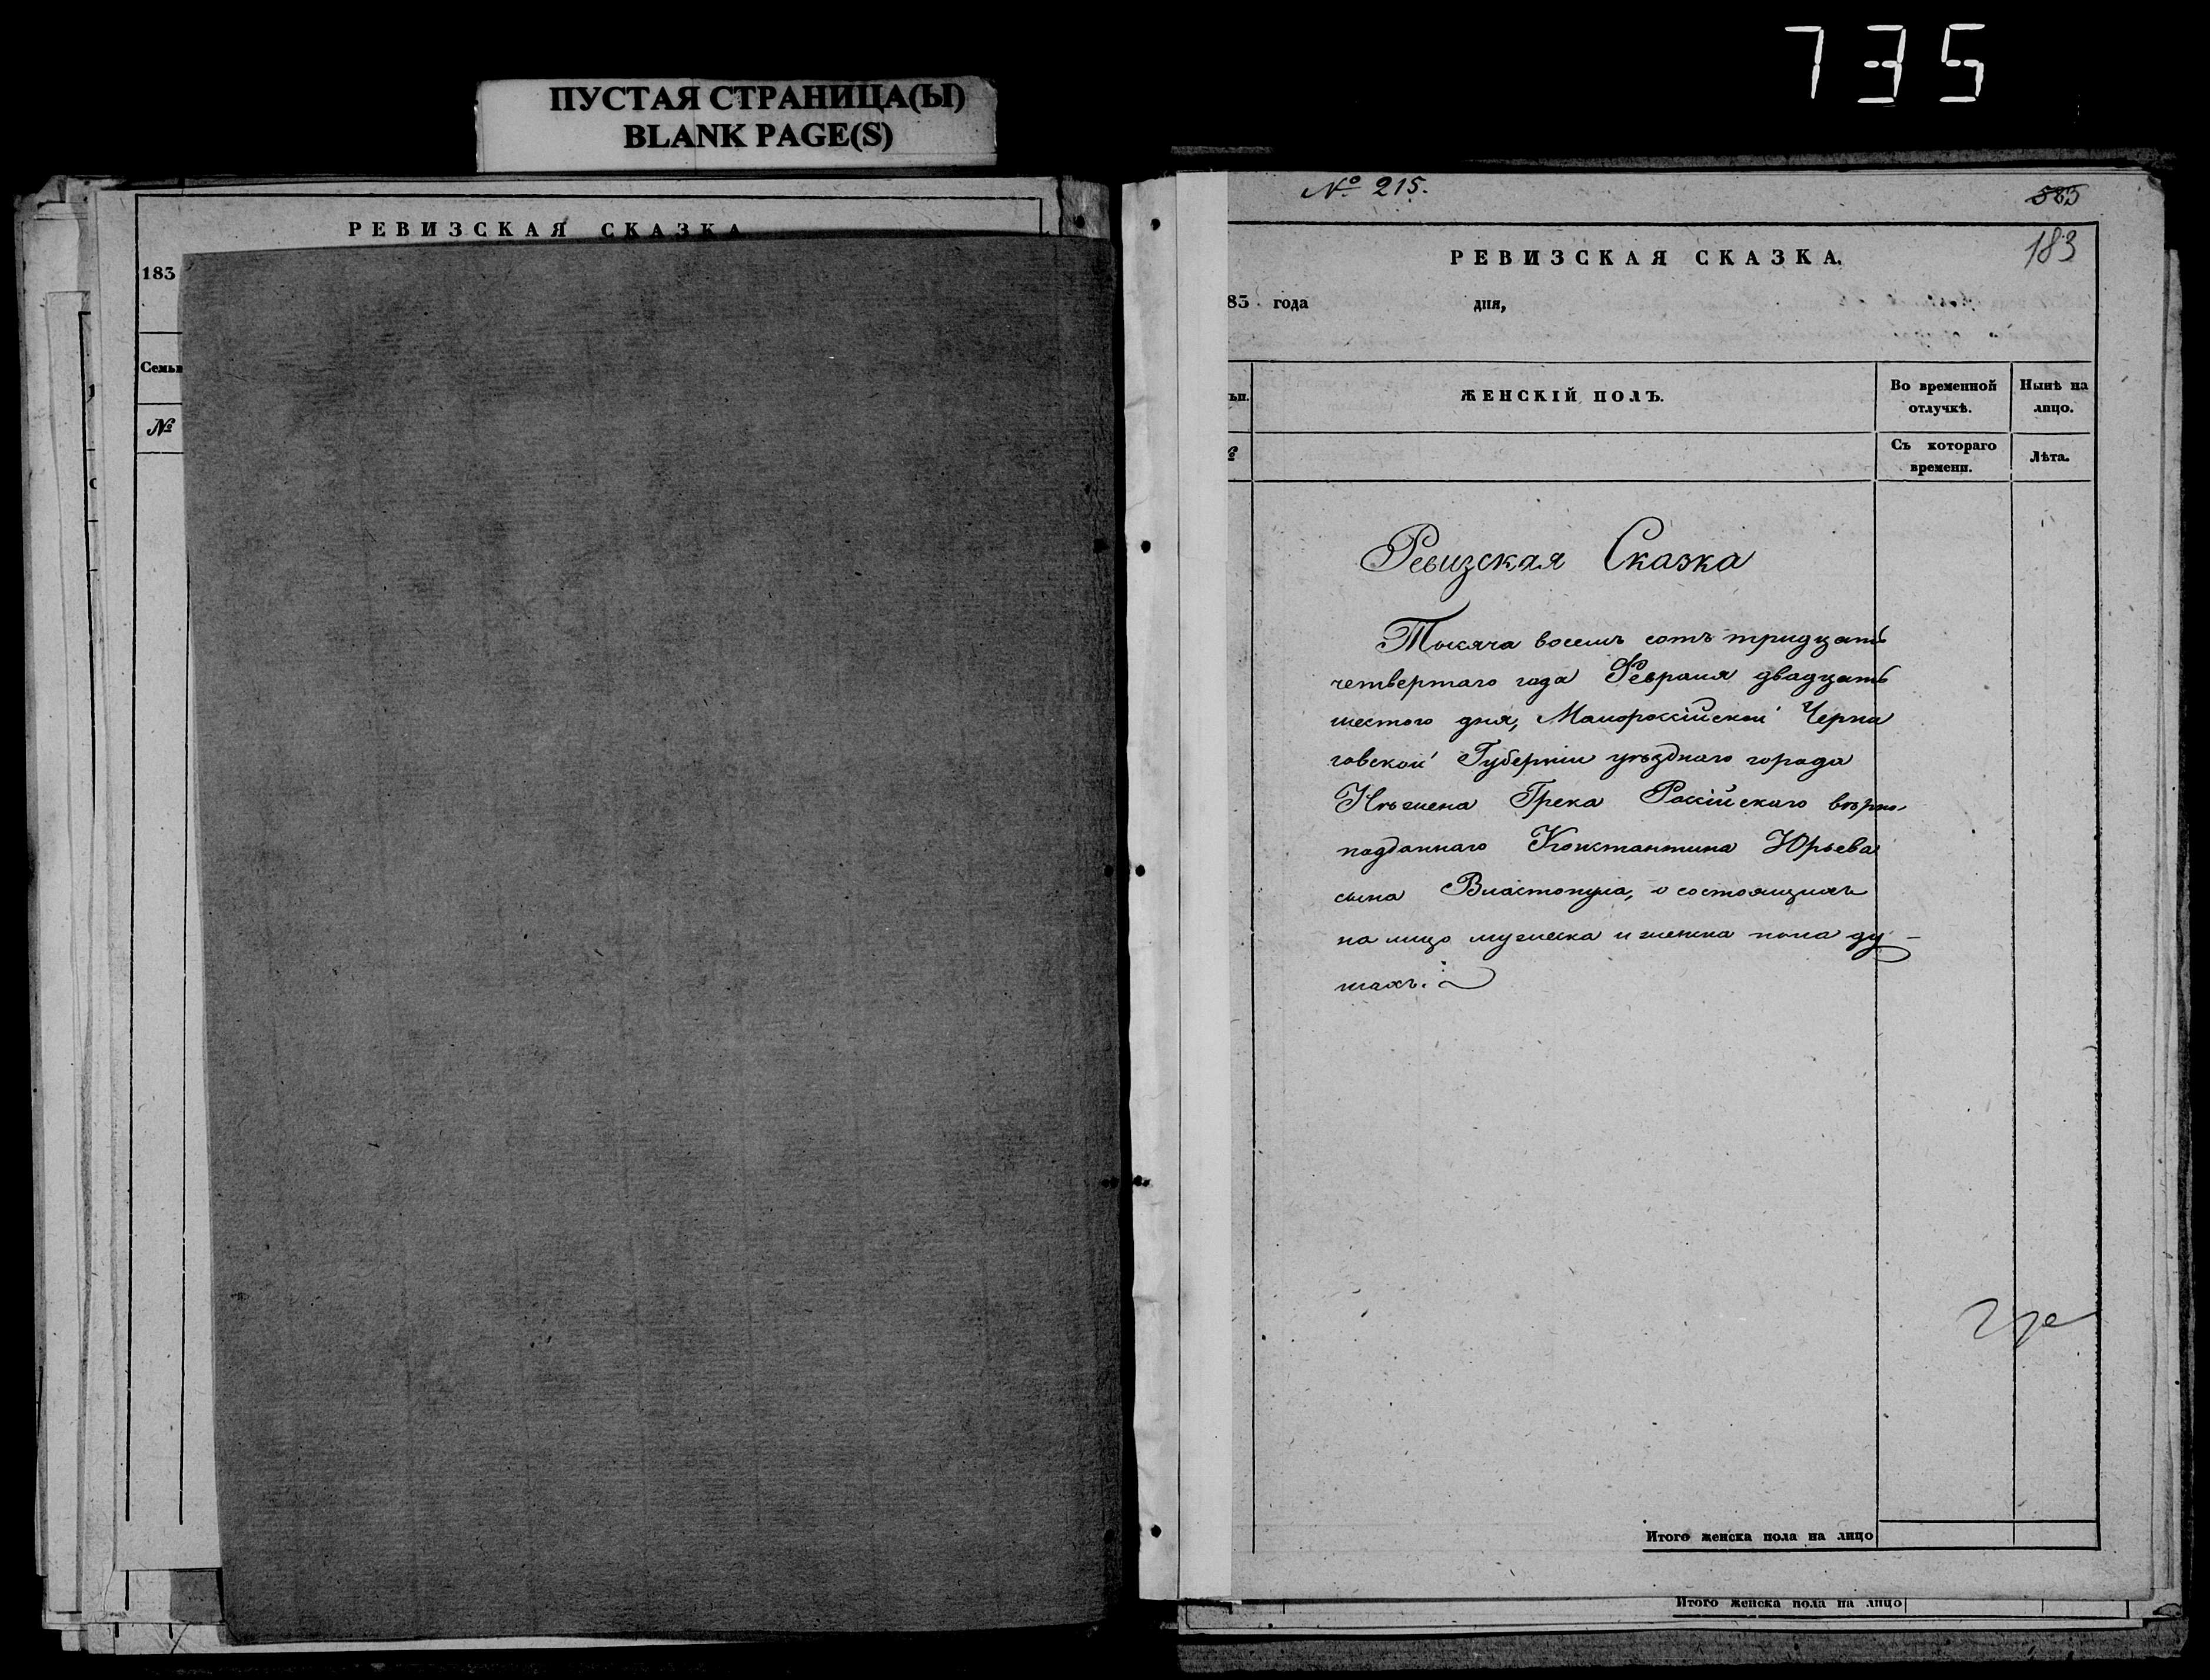 735
ПУСТАЯ СТРАНИЦА(Ы)
BLANK PAGE(S)
РЕВИЗСКАЯ СКАЗКА
183
Семьи
№
№ 215.
583
183
РЕВИЗСКАЯ СКАЗКА.
83 года дня,
ьи. ЖЕНСКІЙ ПОЛЪ. Во временной отлучкѣ. Нынѣ на лицо.
Съ котораго времени. Лѣта.
Ревизская Сказка
Тысяча восемъ сотъ тридцать
четвертаго года Февраля двадцать
шестого дня, Малороссійской Черни
говской Губерніи уѣзднаго города
Нѣжена Грека Россійскаго вѣрно-
подданнаго Константина Юрьева
сына Властопула, о состоящихъ
на лицо мужеска и женска пола ду-
шахъ.
Итого женска пола на лицо
Итого женска пола на лицо